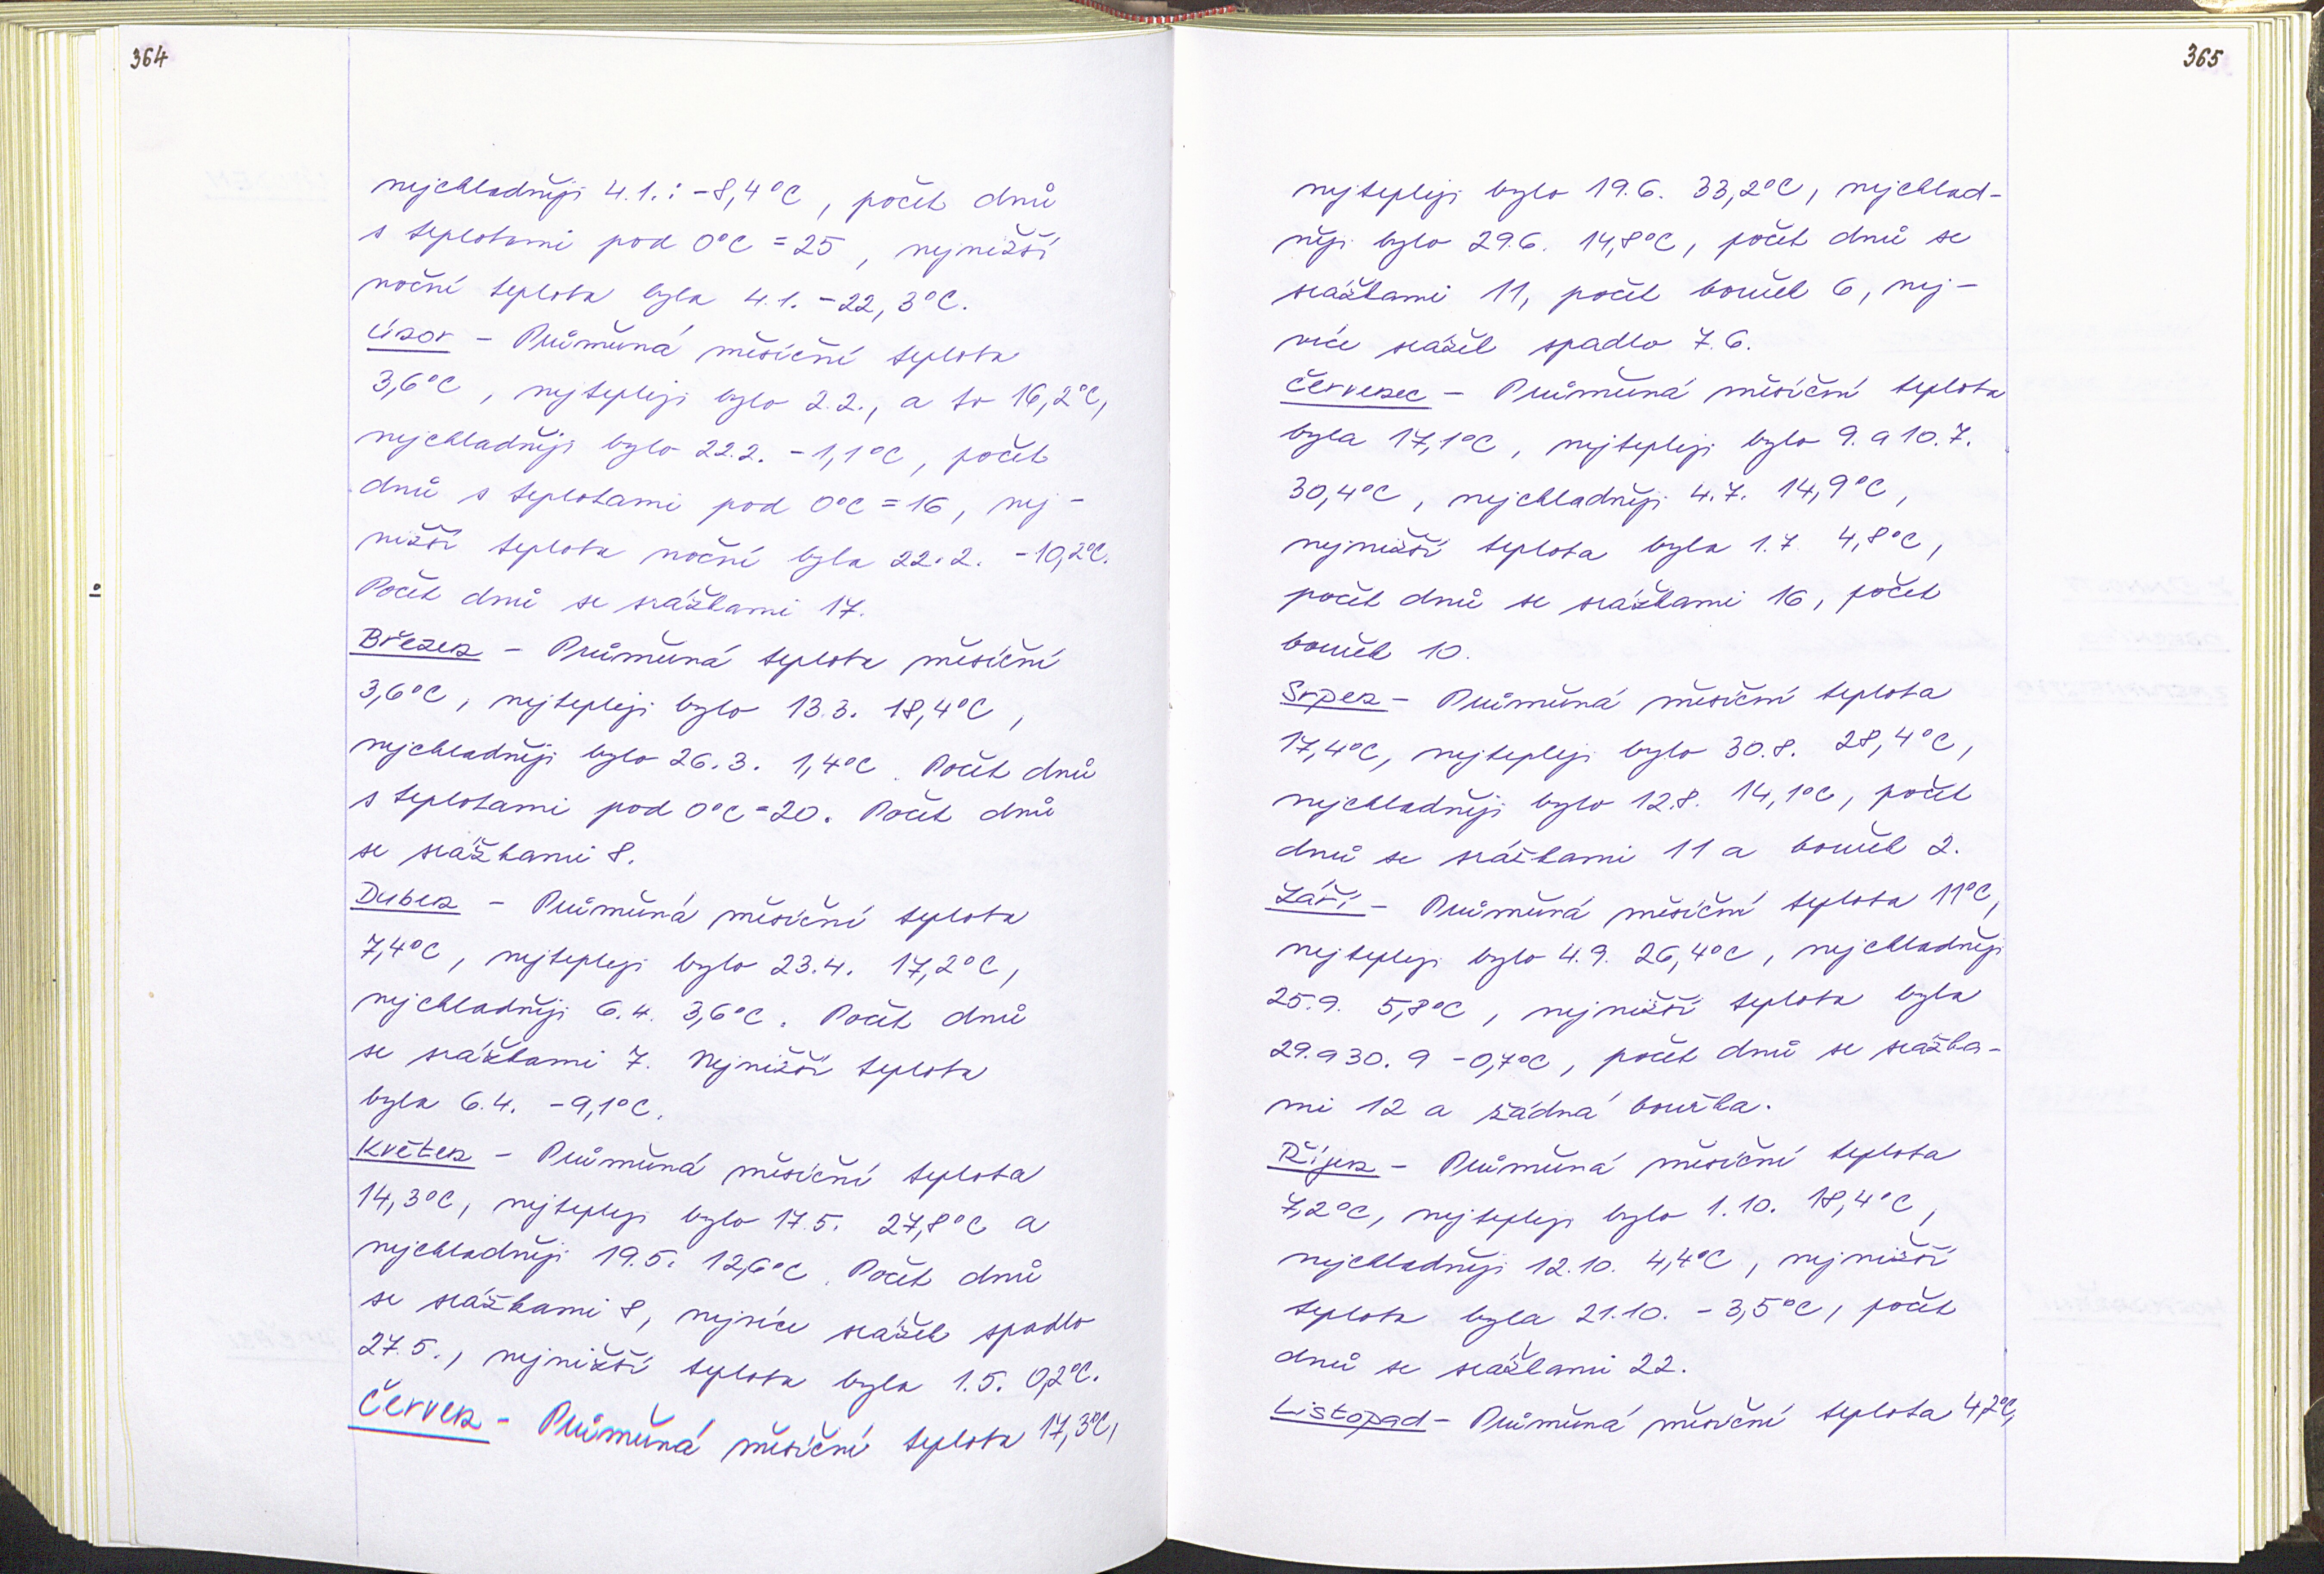 364
nejchladněji 4.1.: -8,4°C, počet dnů
s teplotami pod 0°C = 25, nejnižší
noční teplota byla 4.1. -22,3°C.
Únor - Průměrná měsíční teplota
3,6°C, nejtepleji bylo 2.2., a to 16,2°C,
nejchladněji bylo 22.2. -1,1°C, počet
dnů s teplotami pod 0°C = 16, nej-
nižší teplota noční byla 22.2. -10,2°C.
Počet dnů se srážkami 17.
Březen - Průměrná teplota měsíční
3,6°C, nejtepleji bylo 13.3. 18,4°C,
nejchladněji bylo 26.3. 1,4°C. Počet dnů
s teplotami pod 0°C = 20. Počet dnů
se srážkami 8.
Duben - Průměrná měsíční teplota
7,4°C, nejtepleji bylo 23.4. 17,2°C,
nejchladněji 6.4. 3,6°C. Počet dnů
se srážkami 7. Nejnižší teplota
byla 6.4. -9,1°C.
Květen - Průměrná měsíční teplota
14,3°C, nejtepleji bylo 17.5. 27,8°C a
nejchladněji 19.5. 12,6°C. Počet dnů
se srážkami 8, nejvíce srážek spadlo
27.5., nejnižší teplota byla 1.5. 0,2°C.
Červen - Průměrná měsíční teplota 17,3°C,
365
nejtepleji bylo 19.6. 33,2°C, nejchlad-
něji bylo 29.6. 14,8°C, počet dnů se
srážkami 11, počet bouřek 6, nej-
více srážek spadlo 7.6.
Červenec - Průměrná měsíční teplota
byla 17,1°C, nejtepleji bylo 9. a 10.7.
30,4°C, nejchladněji 4.7. 14,9°C,
nejnižší teplota byla 1.7. 4,8°C,
počet dnů se srážkami 16, počet
bouřek 10.
Srpen - Průměrná měsíční teplota
17,4°C, nejtepleji bylo 30.8. 28,4°C,
nejchladněji bylo 12.8. 14,1°C, počet
dnů se srážkami 11 a bouřek 2.
Září - Průměrná měsíční teplota 11°C,
nejtepleji bylo 4.9. 26,4°C, nejchladněji
25.9. 5,8°C, nejnižší teplota byla
29. a 30. 9 -0,7°C, počet dnů se srážka-
mi 12 a žádná bouřka.
Říjen - Průměrná měsíční teplota
7,2°C, nejtepleji bylo 1.10. 18,4°C,
nejchladněji 12.10. 4,4°C, nejnižší
teplota byla 21.10. -3,5°C, počet
dnů se srážkami 22.
Listopad - Průměrná měsíční teplota 4,2°C,